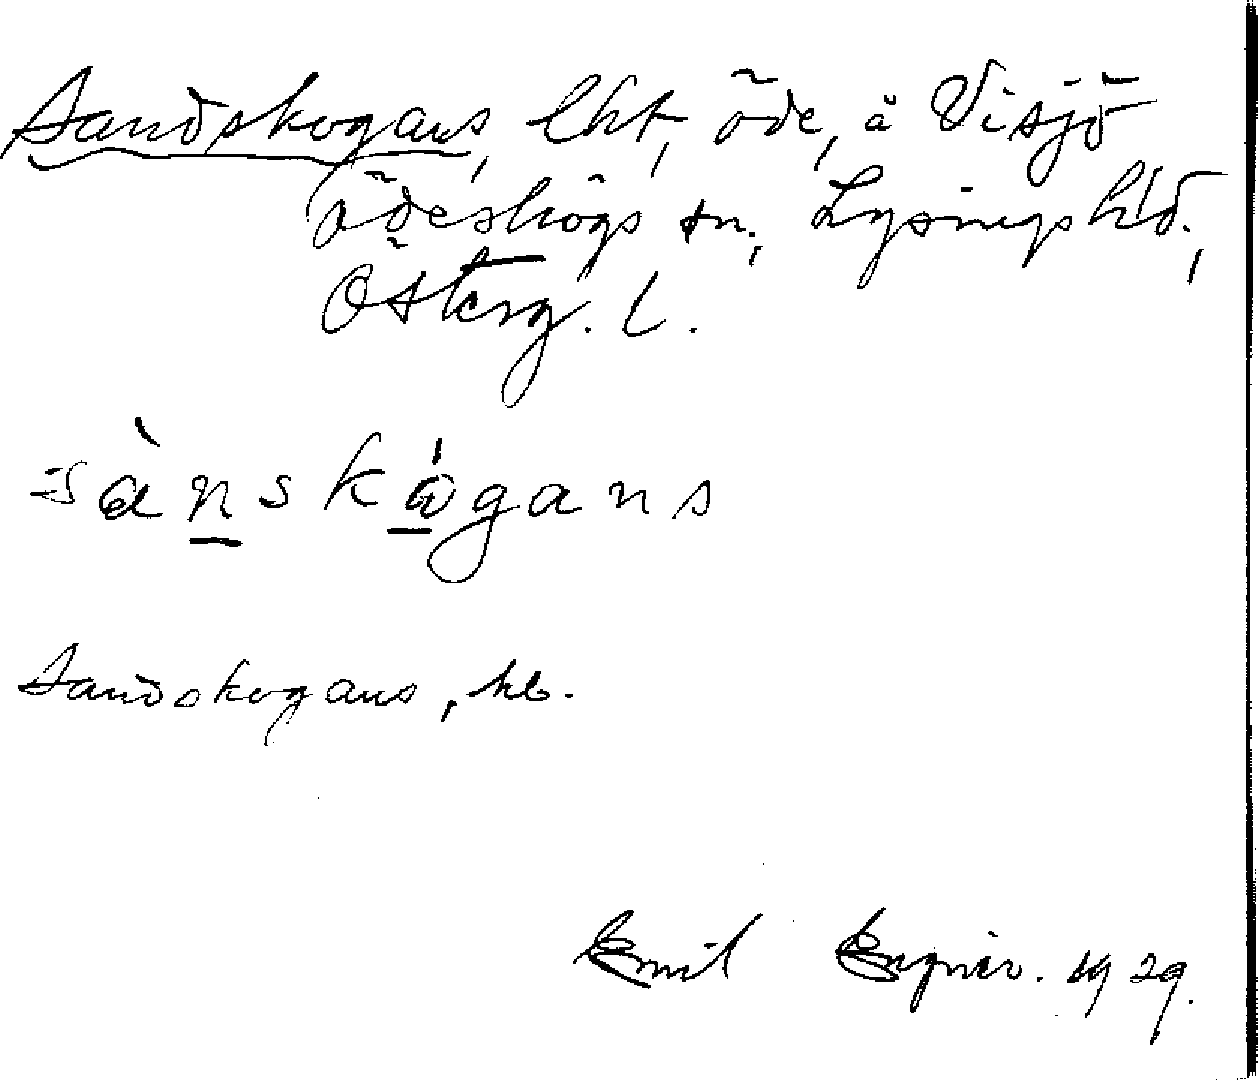 Sandskogans, lht, öde, å Visjö
Ödeshögs sn., Lysings hd.,
Österg. l.
sànskógans
Sandskogans, hb.
Emil 1929.